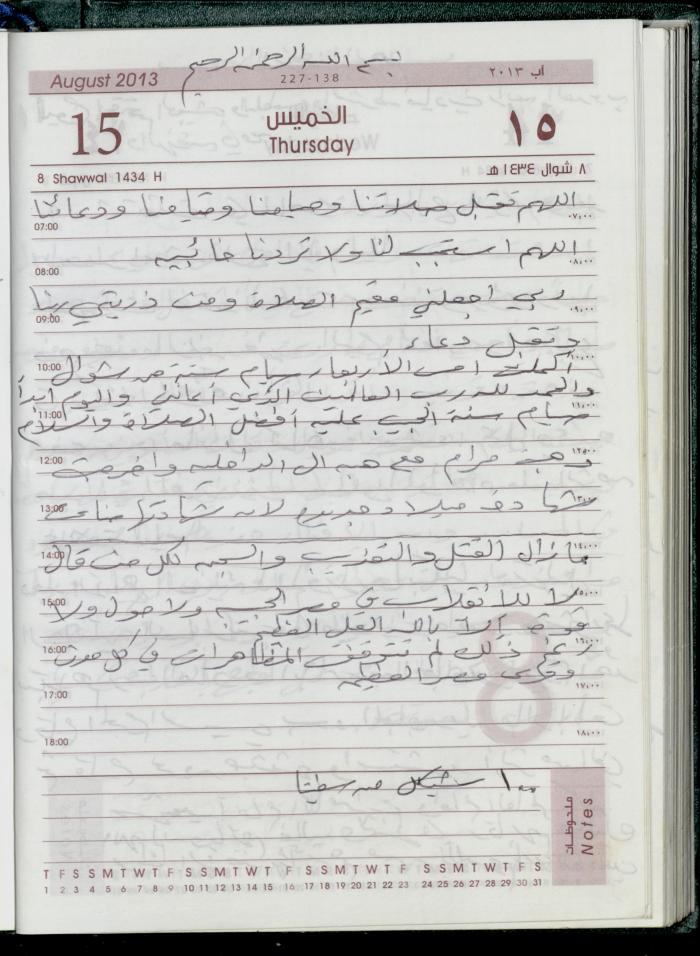 بسم الله الرحمن الرحيم
August 2013
227-138
آب ٢٠١٣
15
الخميس
Thursday
١٥
8 Shawwal 1434 H
٨ شوال ١٤٣٤ هـ
اللهم تقبل صلاتنا وصيامنا وقيامنا ودعائنا
07:00
٠٧:٠٠
اللهم استجب لنا ولا تردنا خائبين
08:00
٠٨:٠٠
ربي اجعلني مقيم الصلاة ومن ذريتي ربنا
09:00
٠٩:٠٠
وتقبل دعاء
10:00
١٠:٠٠
أكملت امس الأربعاء صيام ستة من شوال
والحمد لله رب العالمين الذي أعانني واليوم أبدأ
11:00
١١:٠٠
صيام سنة الحبيب عليه أفضل الصلاة والسلام
12:00
١٢:٠٠
ذهبت مرام مع هبه ال الداخليه واخرجت
13:00
١٣:٠٠
لها شهادة ميلاد جديده لان شهادتها ضاعت
14:00
١٤:٠٠
مازال القتل والتعذيب والسجن لكل من قال
15:00
١٥:٠٠
لا للانقلاب في مصر الحبيبه ولا حول ولا
قوة إلا بالله العلي العظيم
16:00
١٦:٠٠
رغم ذلك لم تتوقف المظاهرات في كل مدن
وقرى مصر العظيمه
17:00
١٧:٠٠
18:00
١٨:٠٠
8
١٠٠ شيكل من
ملحوظات
Notes
T F S S M T W T F S S M T W T F S S M T W T F S S M T W T F S
1 2 3 4 5 6 7 8 9 10 11 12 13 14 15 16 17 18 19 20 21 22 23 24 25 26 27 28 29 30 31